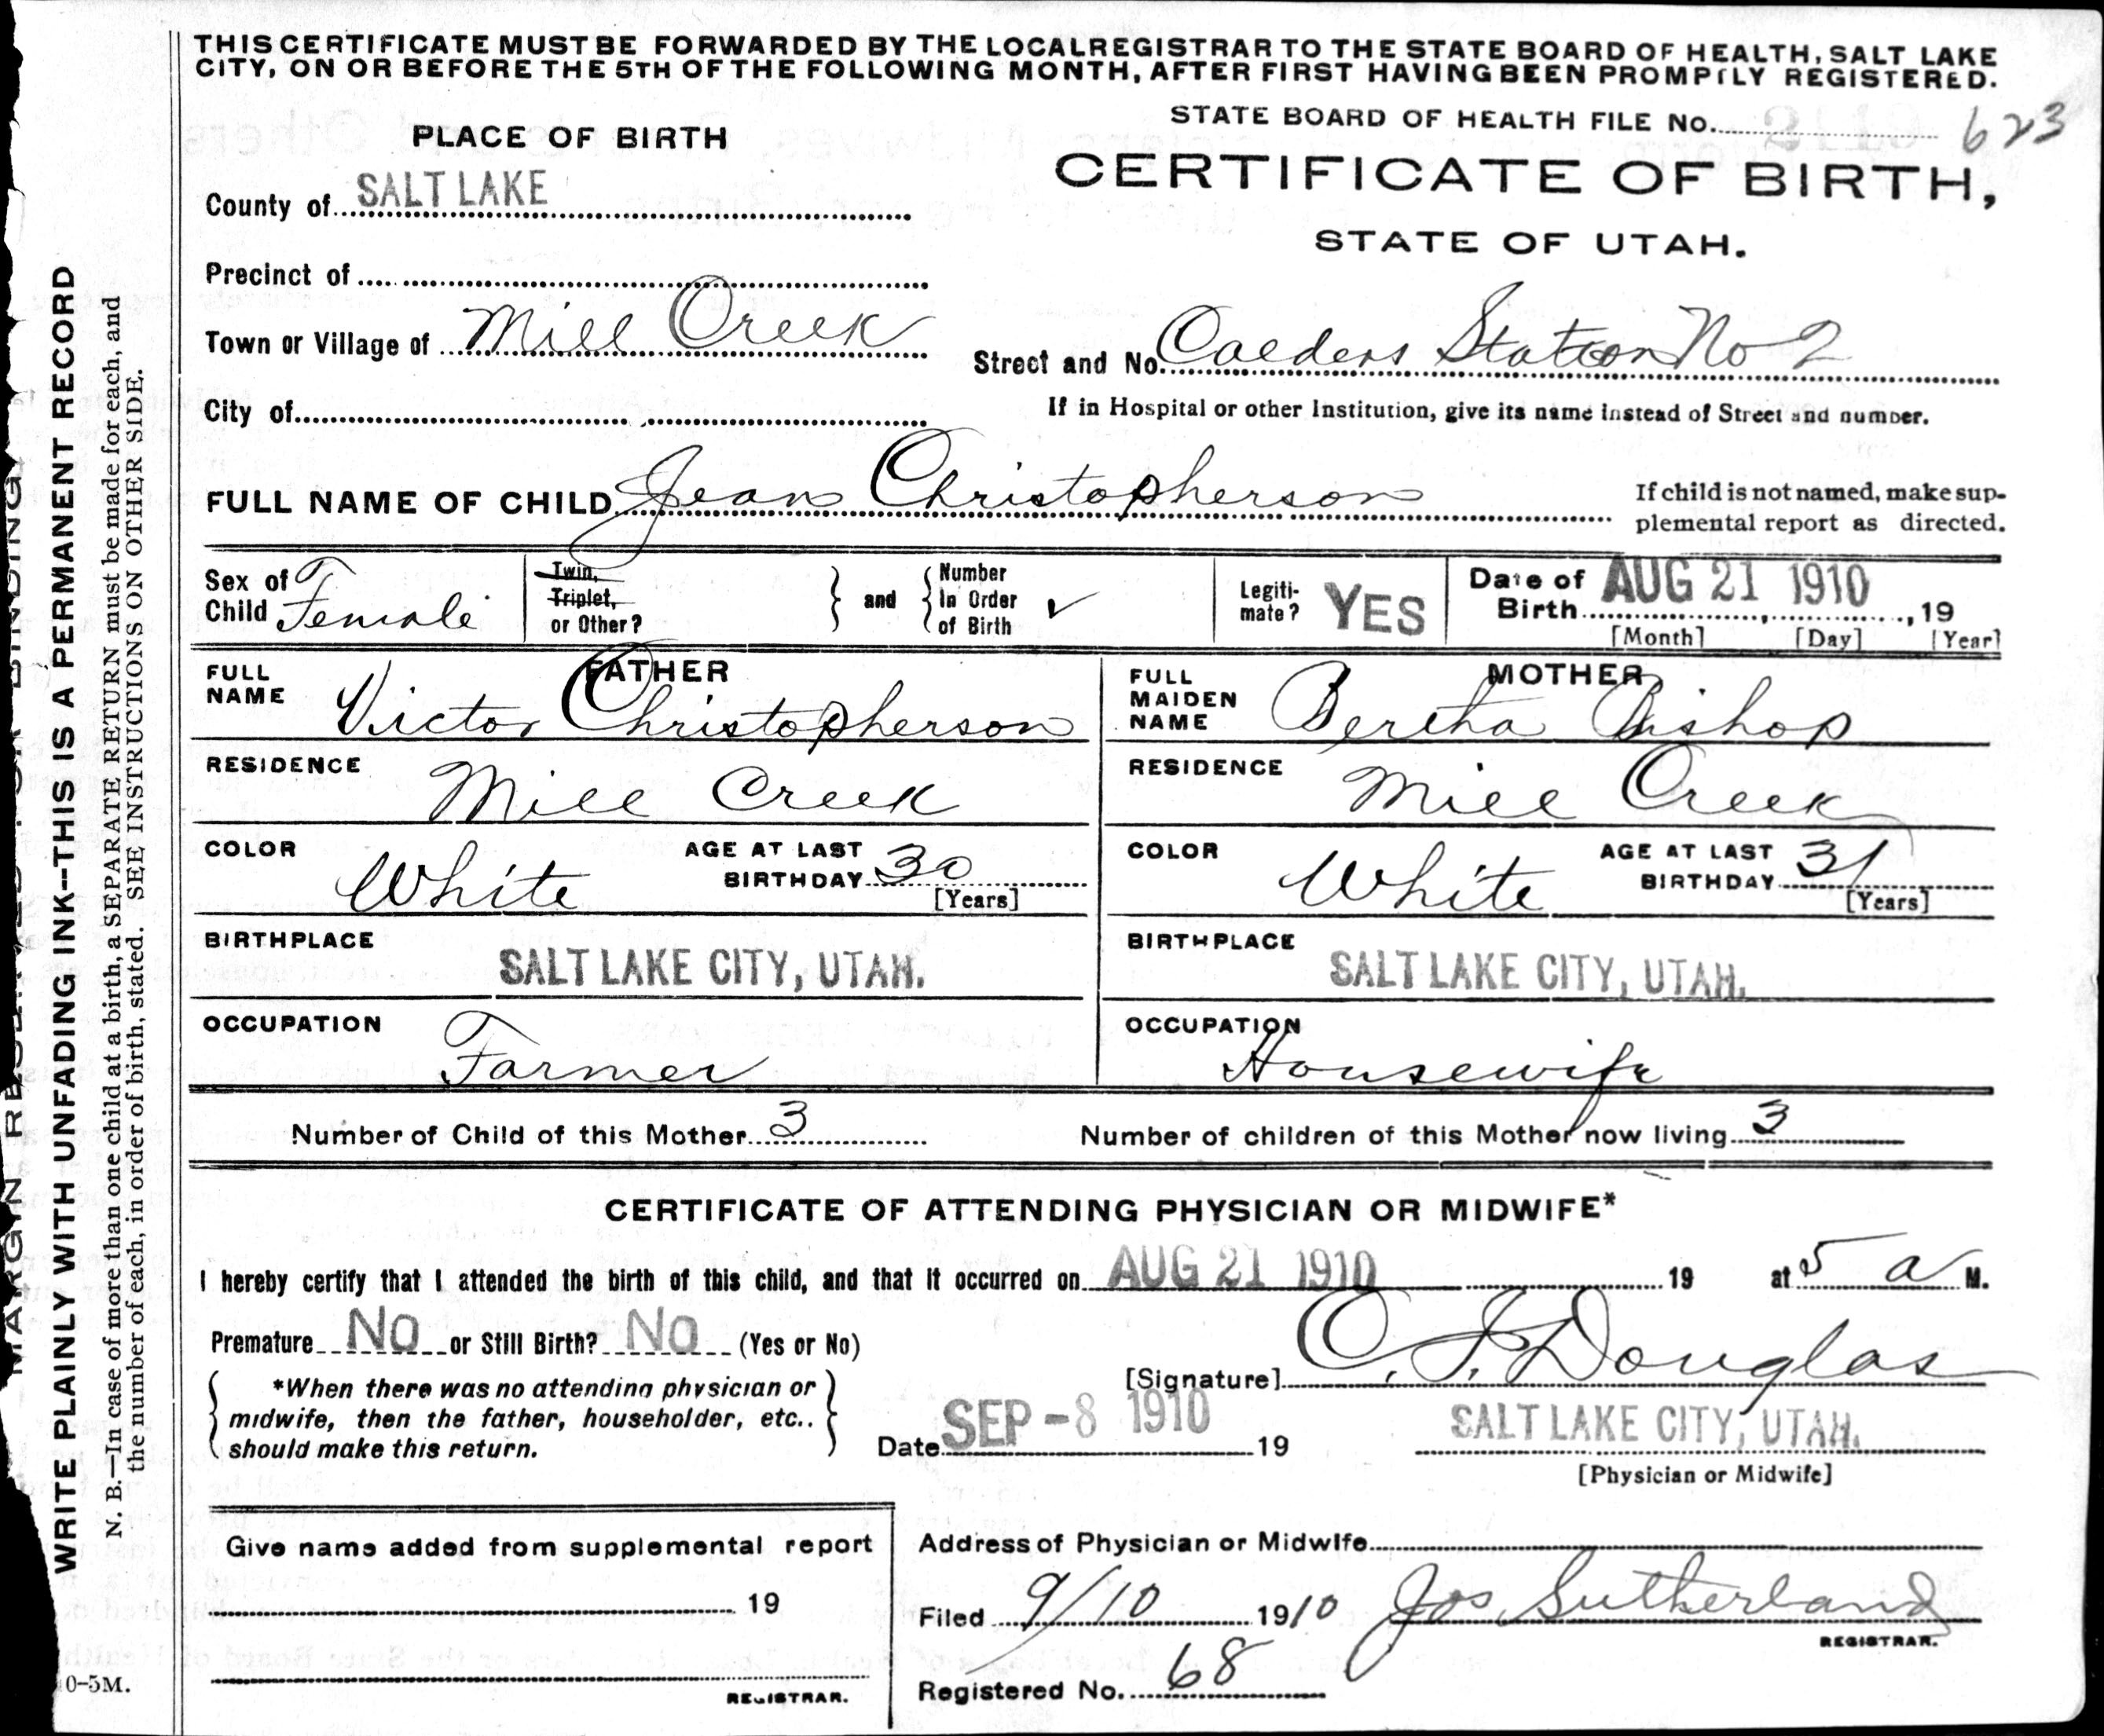 THIS CERTIFICATE MUST BE FORWARDED BY THE LOCAL REGISTRAR TO THE STATE BOARD OF HEALTH, SALT LAKE
CITY, ON OR BEFORE THE 5TH OF THE FOLLOWING MONTH, AFTER FIRST HAVING BEEN PROMPTLY REGISTERED.
STATE BOARD OF HEALTH FILE No. 623
PLACE OF BIRTH
CERTIFICATE OF BIRTH,
STATE OF UTAH.
County of SALT LAKE
Precinct of
Town or Village of Mill Creek
Street and No. Calders Station No 2
City of
If in Hospital or other Institution, give its name instead of Street and number.
FULL NAME OF CHILD Jean Christopherson
If child is not named, make sup-
plemental report as directed.
Sex of Child Female
Twin, Triplet, or Other?
and
Number In Order of Birth ✓
Legiti-mate? YES
Date of Birth AUG 21 1910, 19
[Month] [Day] [Year]
FATHER
FULL NAME Victor Christopherson
RESIDENCE Mill Creek
COLOR White
AGE AT LAST BIRTHDAY 30 [Years]
BIRTHPLACE SALT LAKE CITY, UTAH.
OCCUPATION Farmer
MOTHER
FULL MAIDEN NAME Bertha Bishop
RESIDENCE Mill Creek
COLOR White
AGE AT LAST BIRTHDAY 31 [Years]
BIRTHPLACE SALT LAKE CITY, UTAH.
OCCUPATION Housewife
Number of Child of this Mother 3
Number of children of this Mother now living 3
CERTIFICATE OF ATTENDING PHYSICIAN OR MIDWIFE*
I hereby certify that I attended the birth of this child, and that it occurred on AUG 21 1910 19 at 5 a M.
Premature No or Still Birth? No (Yes or No)
*When there was no attending physician or
midwife, then the father, householder, etc..
should make this return.
[Signature] C. F. Douglas
Date SEP -8 1910 19
SALT LAKE CITY, UTAH.
[Physician or Midwife]
Give name added from supplemental report
19
REGISTRAR.
Address of Physician or Midwife
Filed 9/10 1910 Jos Sutherland
REGISTRAR.
Registered No. 68
MARGIN RESERVED FOR BINDING
WRITE PLAINLY WITH UNFADING INK--THIS IS A PERMANENT RECORD
N. B.—In case of more than one child at a birth, a SEPARATE RETURN must be made for each, and
the number of each, in order of birth, stated. SEE INSTRUCTIONS ON OTHER SIDE.
10-5M.